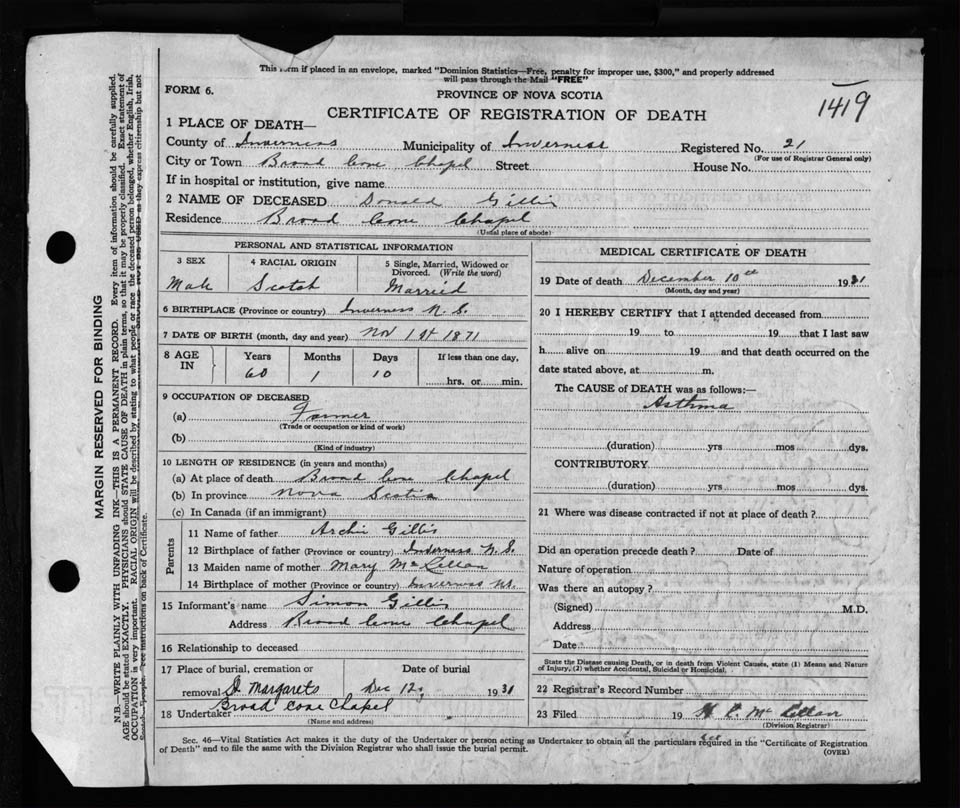 This form if placed in an envelope, marked "Dominion Statistics—Free, penalty for improper use, $300," and properly addressed
will pass through the Mail "FREE"
FORM 6.
PROVINCE OF NOVA SCOTIA
1419
CERTIFICATE OF REGISTRATION OF DEATH
1 PLACE OF DEATH—
County of Inverness Municipality of Inverness Registered No. 21
(For use of Registrar General only)
City or Town Broad Cove Chapel Street House No.
If in hospital or institution, give name
2 NAME OF DECEASED Donald Gillis
Residence Broad Cove Chapel
(Usual place of abode)
PERSONAL AND STATISTICAL INFORMATION
3 SEX 4 RACIAL ORIGIN 5 Single, Married, Widowed or
Divorced. (Write the word)
Male Scotch Married
6 BIRTHPLACE (Province or country) Inverness N.S.
7 DATE OF BIRTH (month, day and year) Nov 1st 1871
8 AGE IN Years Months Days If less than one day,
60 1 10 hrs. or min.
9 OCCUPATION OF DECEASED
(a) Farmer
(Trade or occupation or kind of work)
(b)
(Kind of industry)
10 LENGTH OF RESIDENCE (in years and months)
(a) At place of death Broad Cove Chapel
(b) In province Nova Scotia
(c) In Canada (if an immigrant)
Parents
11 Name of father Archie Gillis
12 Birthplace of father (Province or country) Inverness N.S.
13 Maiden name of mother Mary McLellan
14 Birthplace of mother (Province or country) Inverness N.S.
15 Informant's name Simon Gillis
Address Broad Cove Chapel
16 Relationship to deceased
17 Place of burial, cremation or Date of burial
removal St Margarets Dec 12 1931
Broad Cove Chapel
18 Undertaker
(Name and address)
MEDICAL CERTIFICATE OF DEATH
19 Date of death December 10th 1931
(Month, day and year)
20 I HEREBY CERTIFY that I attended deceased from
19 to 19 that I last saw
h alive on 19 and that death occurred on the
date stated above, at m.
The CAUSE of DEATH was as follows:—
Asthma
(duration) yrs mos dys.
CONTRIBUTORY
(duration) yrs mos dys.
21 Where was disease contracted if not at place of death?
Did an operation precede death? Date of
Nature of operation
Was there an autopsy?
(Signed) M.D.
Address
Date
State the Disease causing Death, or in death from Violent Causes, state (1) Means and Nature
of Injury, (2) whether Accidental, Suicidal or Homicidal.
22 Registrar's Record Number
23 Filed 19 McLellan
(Division Registrar)
Sec. 46—Vital Statistics Act makes it the duty of the Undertaker or person acting as Undertaker to obtain all the particulars required in the "Certificate of Registration
of Death" and to file the same with the Division Registrar who shall issue the burial permit.
(OVER)
MARGIN RESERVED FOR BINDING
N.B.—WRITE PLAINLY WITH UNFADING INK—THIS IS A PERMANENT RECORD. Every item of information should be carefully supplied.
AGE should be stated EXACTLY. PHYSICIANS should STATE CAUSE OF DEATH in plain terms, so that it may be properly classified. Exact statement of
OCCUPATION is very important. RACIAL ORIGIN will be described by stating to what people or race the deceased person belonged, whether English, Irish,
as they express citizenship but not
See instructions on back of Certificate.